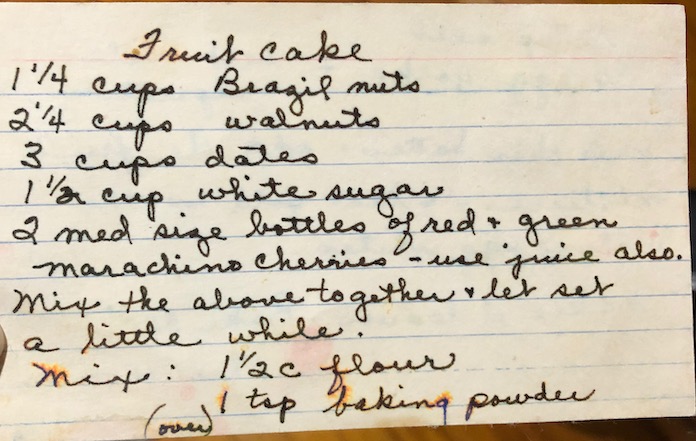 Fruit cake
1 1/4 cups Brazil nuts
2 1/4 cups walnuts
3 cups dates
1 1/2 cup white sugar
2 med size bottles of red + green
marachino cherries - use juice also.
Mix the above together + let set
a little while.
Mix: 1 1/2 c flour
1 tsp baking powder
(over)